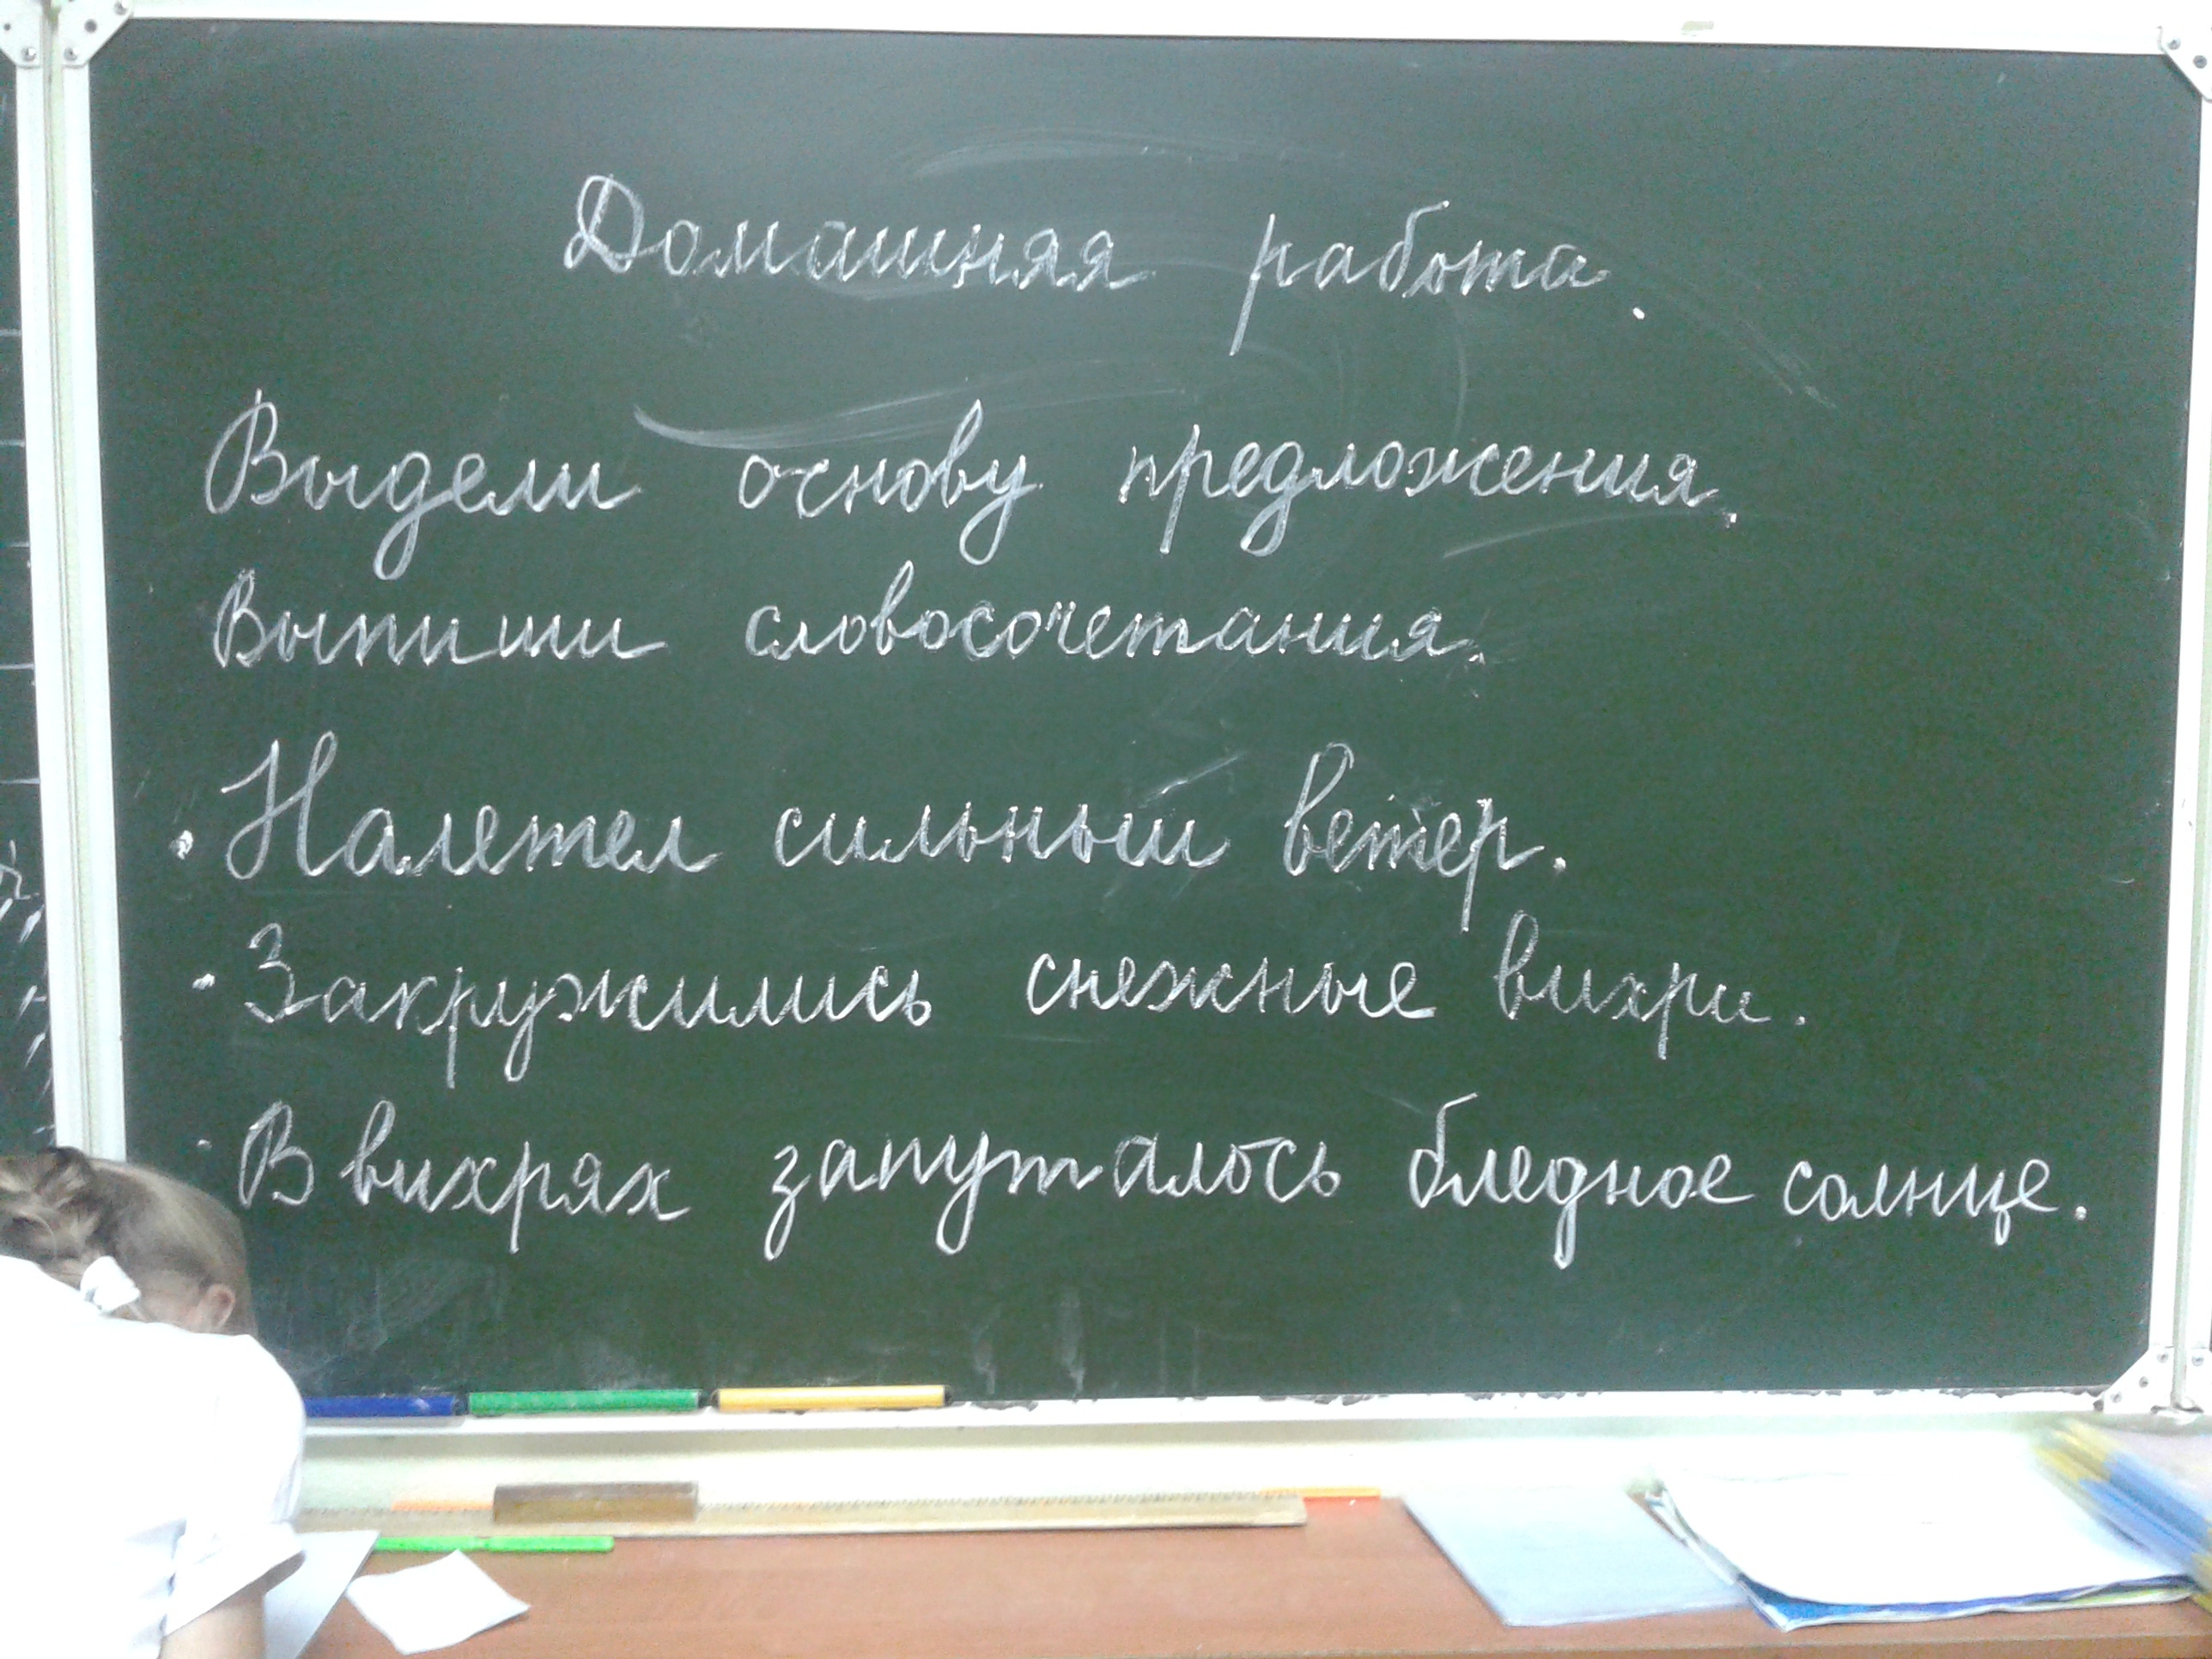 Домашняя работа.
Выдели основу предложения.
Выпиши словосочетания.
· Налетел сильный ветер.
· Закружились снежные вихри.
· В вихрях запуталось бледное солнце.